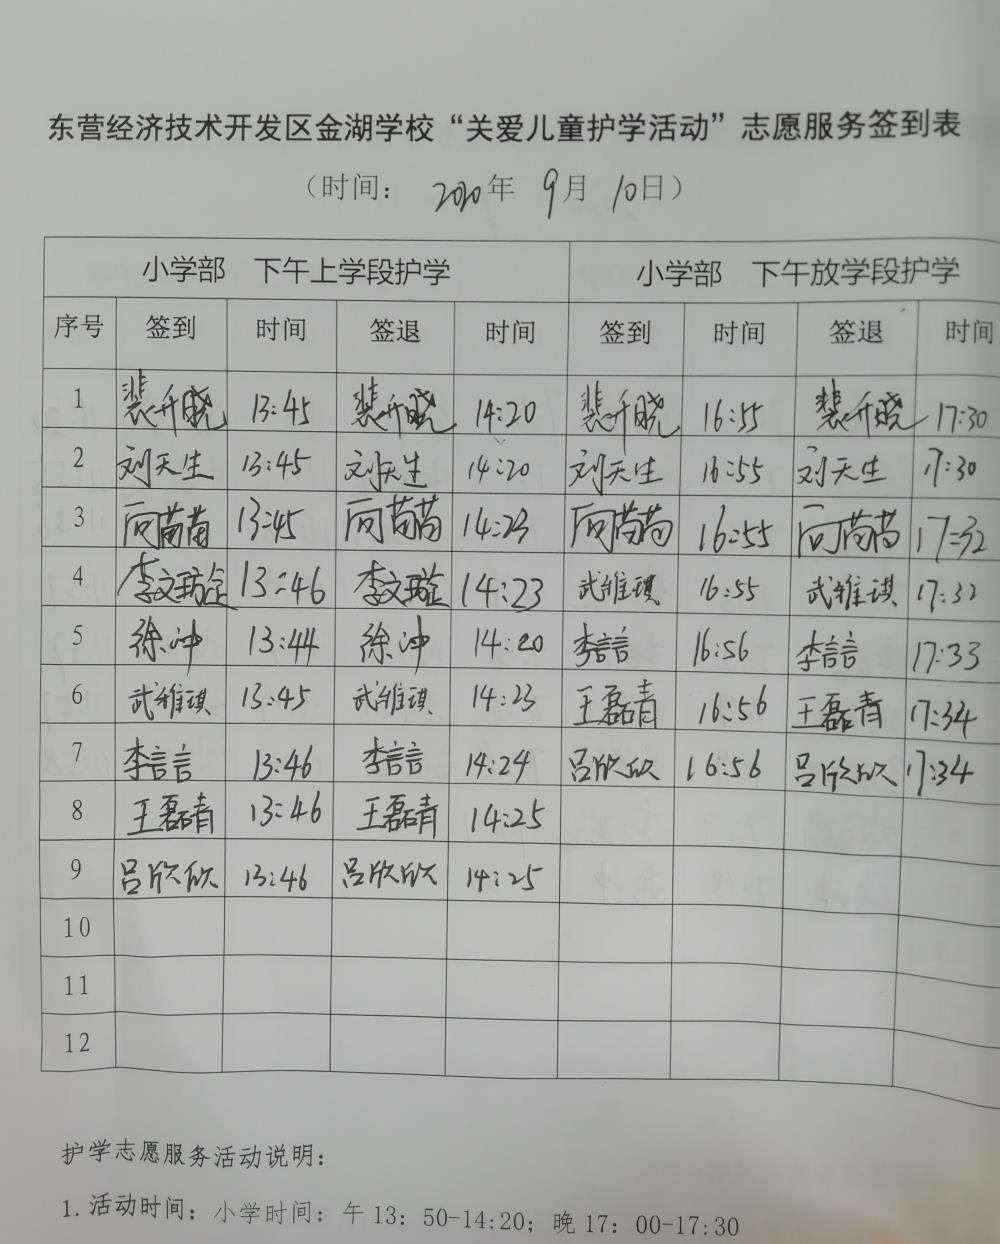 东营经济技术开发区金湖学校“关爱儿童护学活动”志愿服务签到表
（时间： 2020年 9月 10日）
小学部 下午上学段护学 小学部 下午放学段护学
序号 签到 时间 签退 时间 签到 时间 签退 时间
1 裴升晓 13:45 裴升晓 14:20 裴升晓 16:55 裴升晓 17:30
2 刘天生 13:45 刘天生 14:20 刘天生 16:55 刘天生 17:30
3 向苗苗 13:45 向苗苗 14:23 向苗苗 16:55 向苗苗 17:32
4 李文璇 13:46 李文璇 14:23 武维琪 16:55 武维琪 17:32
5 徐冲 13:44 徐冲 14:20 李言言 16:56 李言言 17:33
6 武维琪 13:45 武维琪 14:23 王磊青 16:56 王磊青 17:34
7 李言言 13:46 李言言 14:24 吕欣欣 16:56 吕欣欣 17:34
8 王磊青 13:46 王磊青 14:25
9 吕欣欣 13:46 吕欣欣 14:25
10
11
12
护学志愿服务活动说明：
1. 活动时间：小学时间：午13：50-14:20；晚17：00-17:30